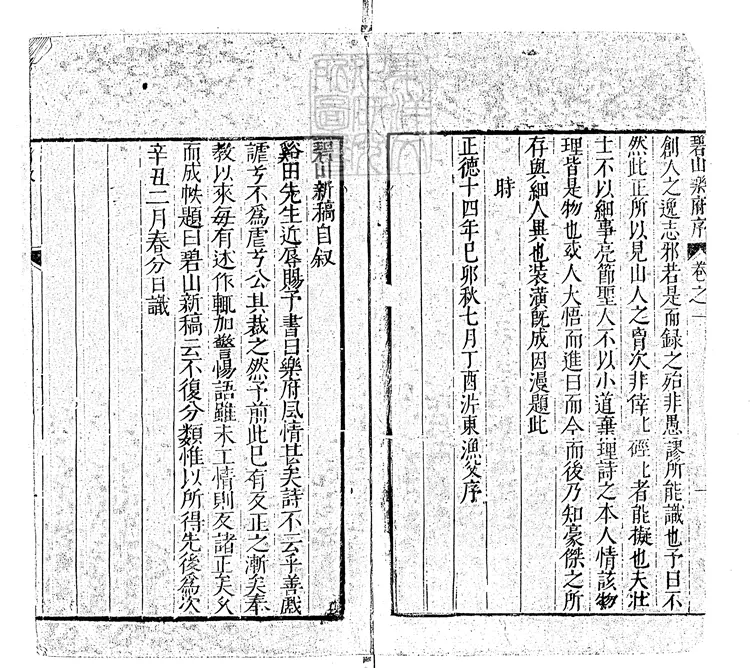 碧山樂府序 卷之一
創人之逸志邪若是而録之殆非愚謬所能識也予曰不
然此正所以見山人之胷次非倖〻硜〻者能擬也夫壯
士不以細事亮節聖人不以小道棄理詩之本人情該物
理皆是物也或人大悟而進曰而今而後乃知豪傑之所
存與細人異也装潢既成因漫題此
時
正德十四年巳卯秋七月丁酉沜東漁父序
碧山新稿自叙
谿田先生近辱賜予書曰樂府風情甚矣詩不云乎善戲
謔兮不爲虐兮公其裁之然予前此巳有反正之漸矣奉
教以來每有述作輒加警惕語雖未工情則反諸正矣久
而成帙題曰碧山新稿云不復分類惟以所得先後爲次
辛丑二月春分日識